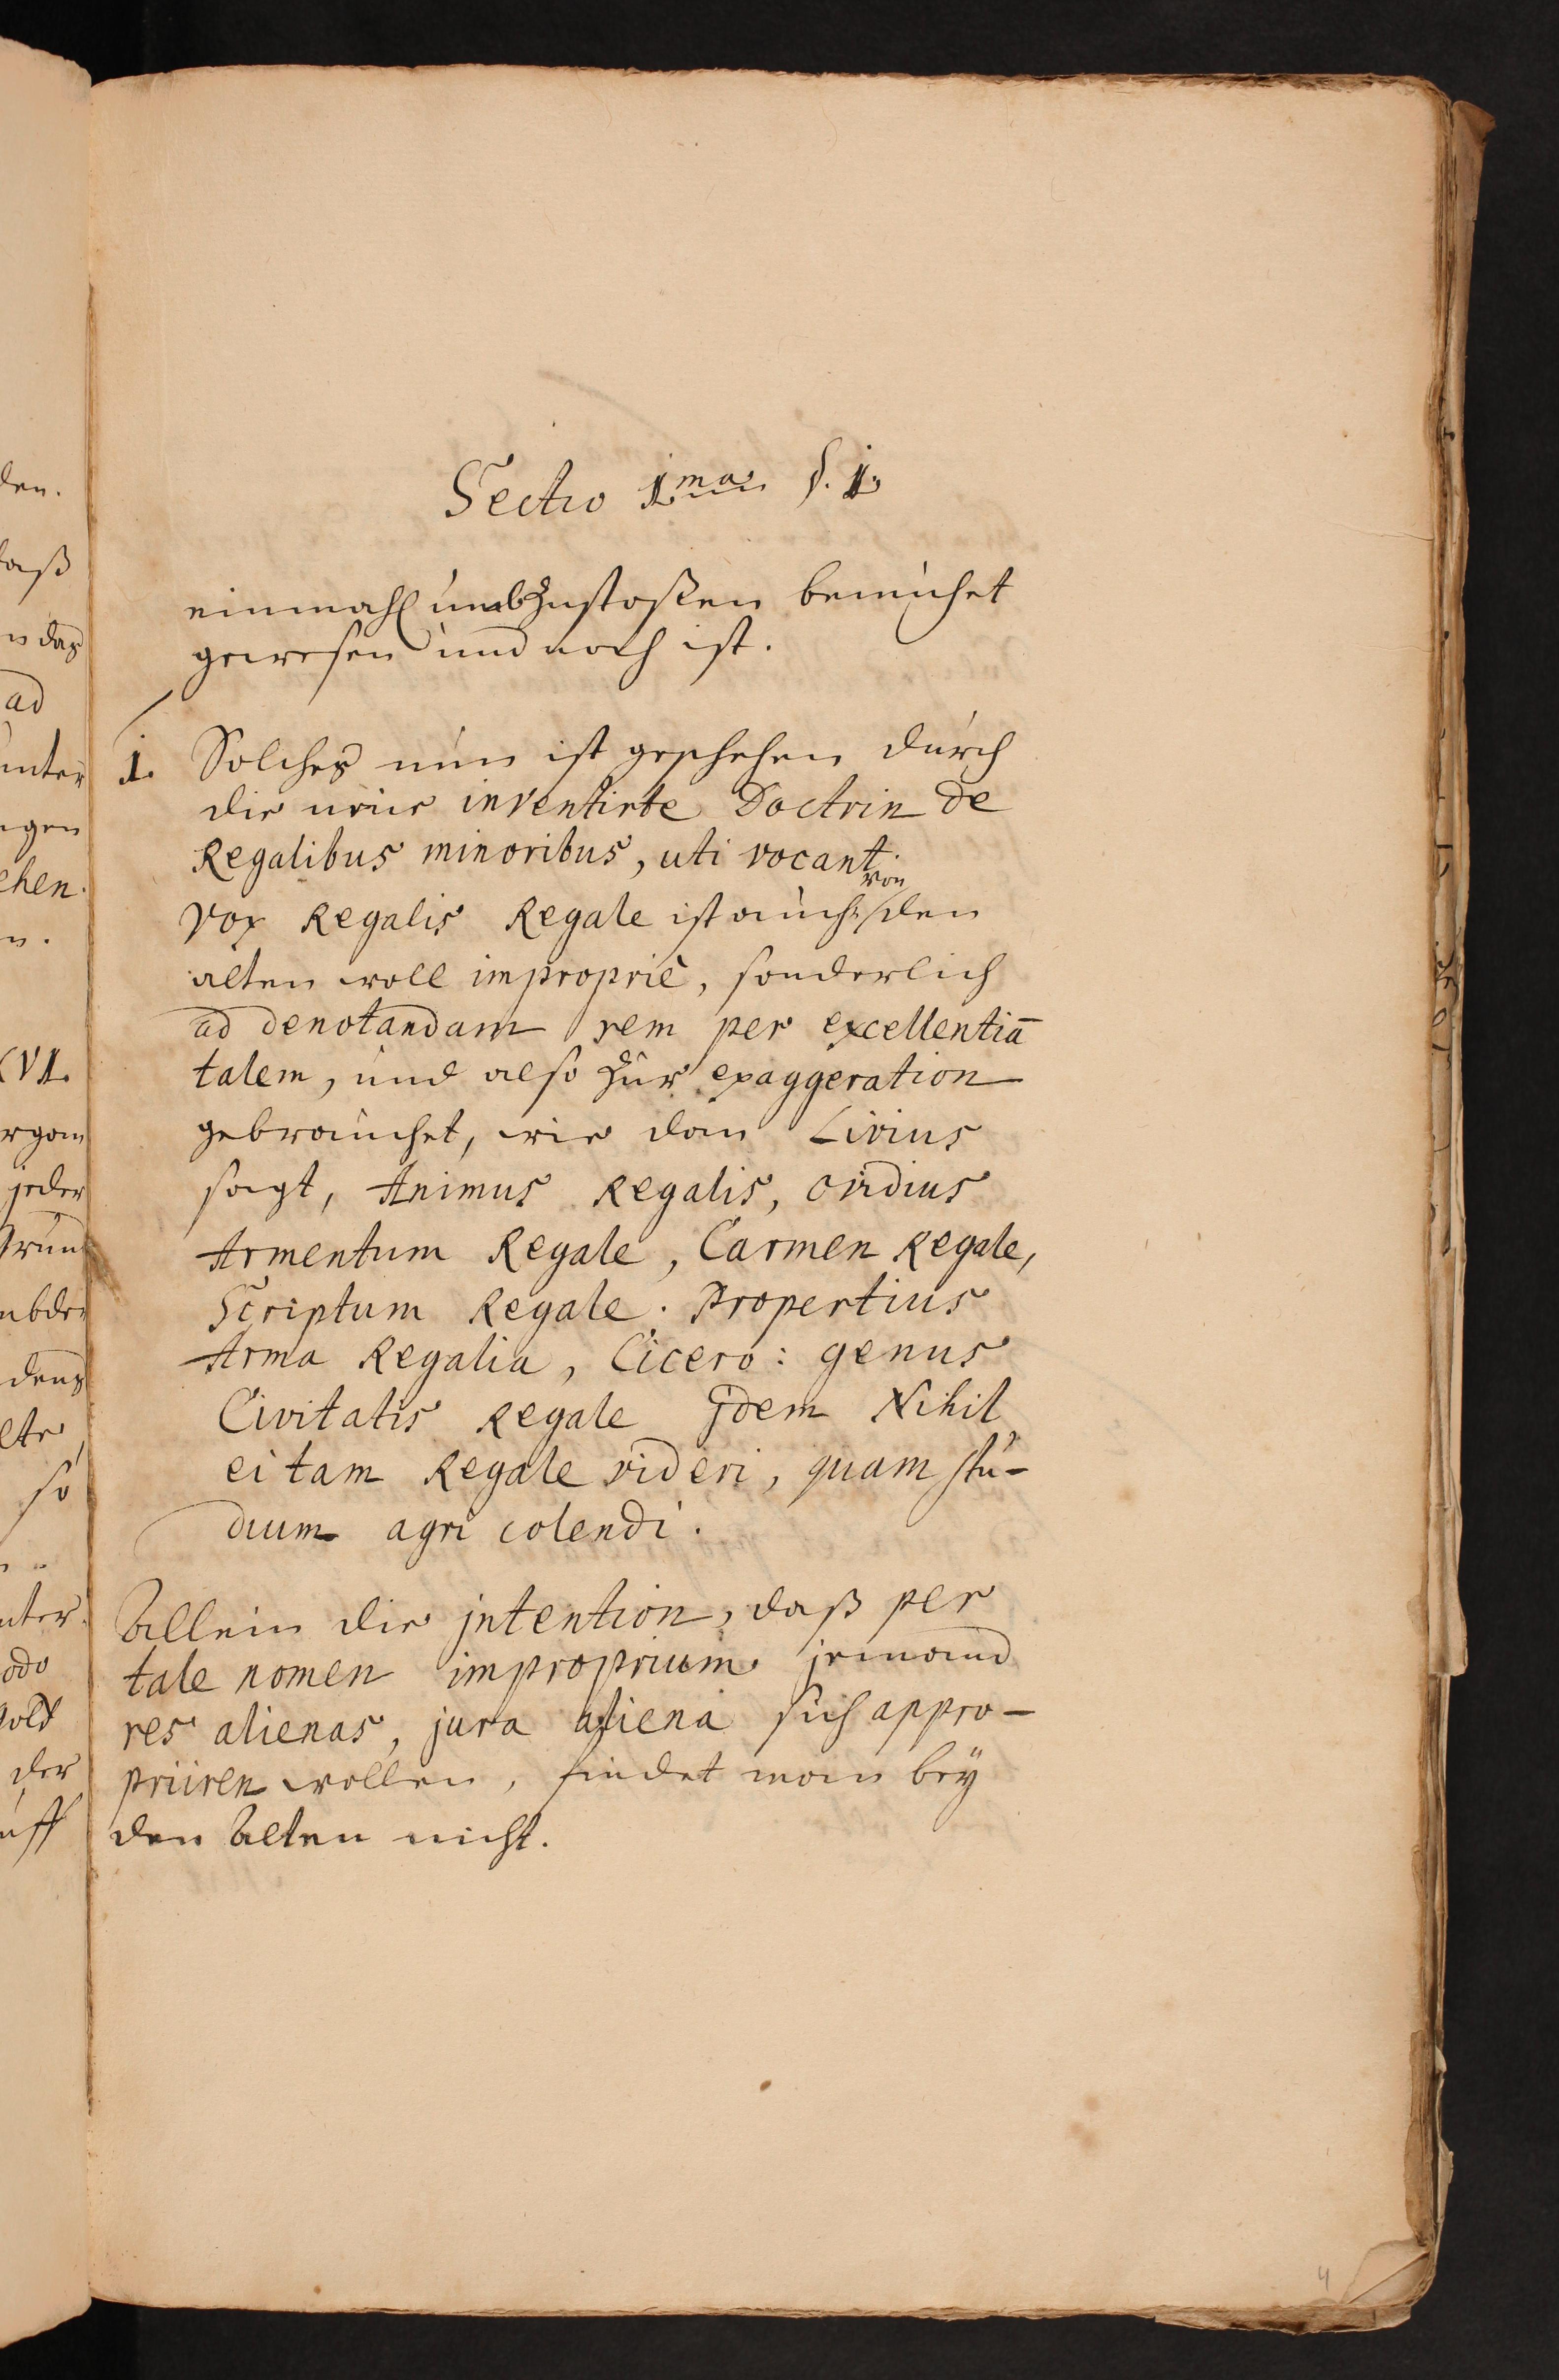 Sectio 1.ma §. 1.
einmahl umbzustoßen bemühet
gewesen und noch ist.
1. Solches nun ist geschehen durch
die neue inventirte Doctrin de
Regalibus minoribus, uti vocant.
von
vox Regalis Regale ist auch den
alten woll impropriè, sonderlich
ad denotandam rem per excellentiā
talem, und also zur exaggeration
gebrauchet, wie dan Livius
sagt, Animus Regalis, Ovidius
Armentum Regale, Carmen Regale,
Scriptum Regale. Propertius
Arma Regalia, Cicero: genus
Civitatis Regale jdem Nihil
ei tam Regale videri, quam stu-
dium agri colendi.
Allein die jntention, daß per
tale nomen improprium jemand
res alienas, jura aliena sich appro-
priiren wollen, findet man bey
den Alten nicht.
4
den.
daß
das
ad
unter
gen
ehen.
XVI.
jeder
so
der
uff